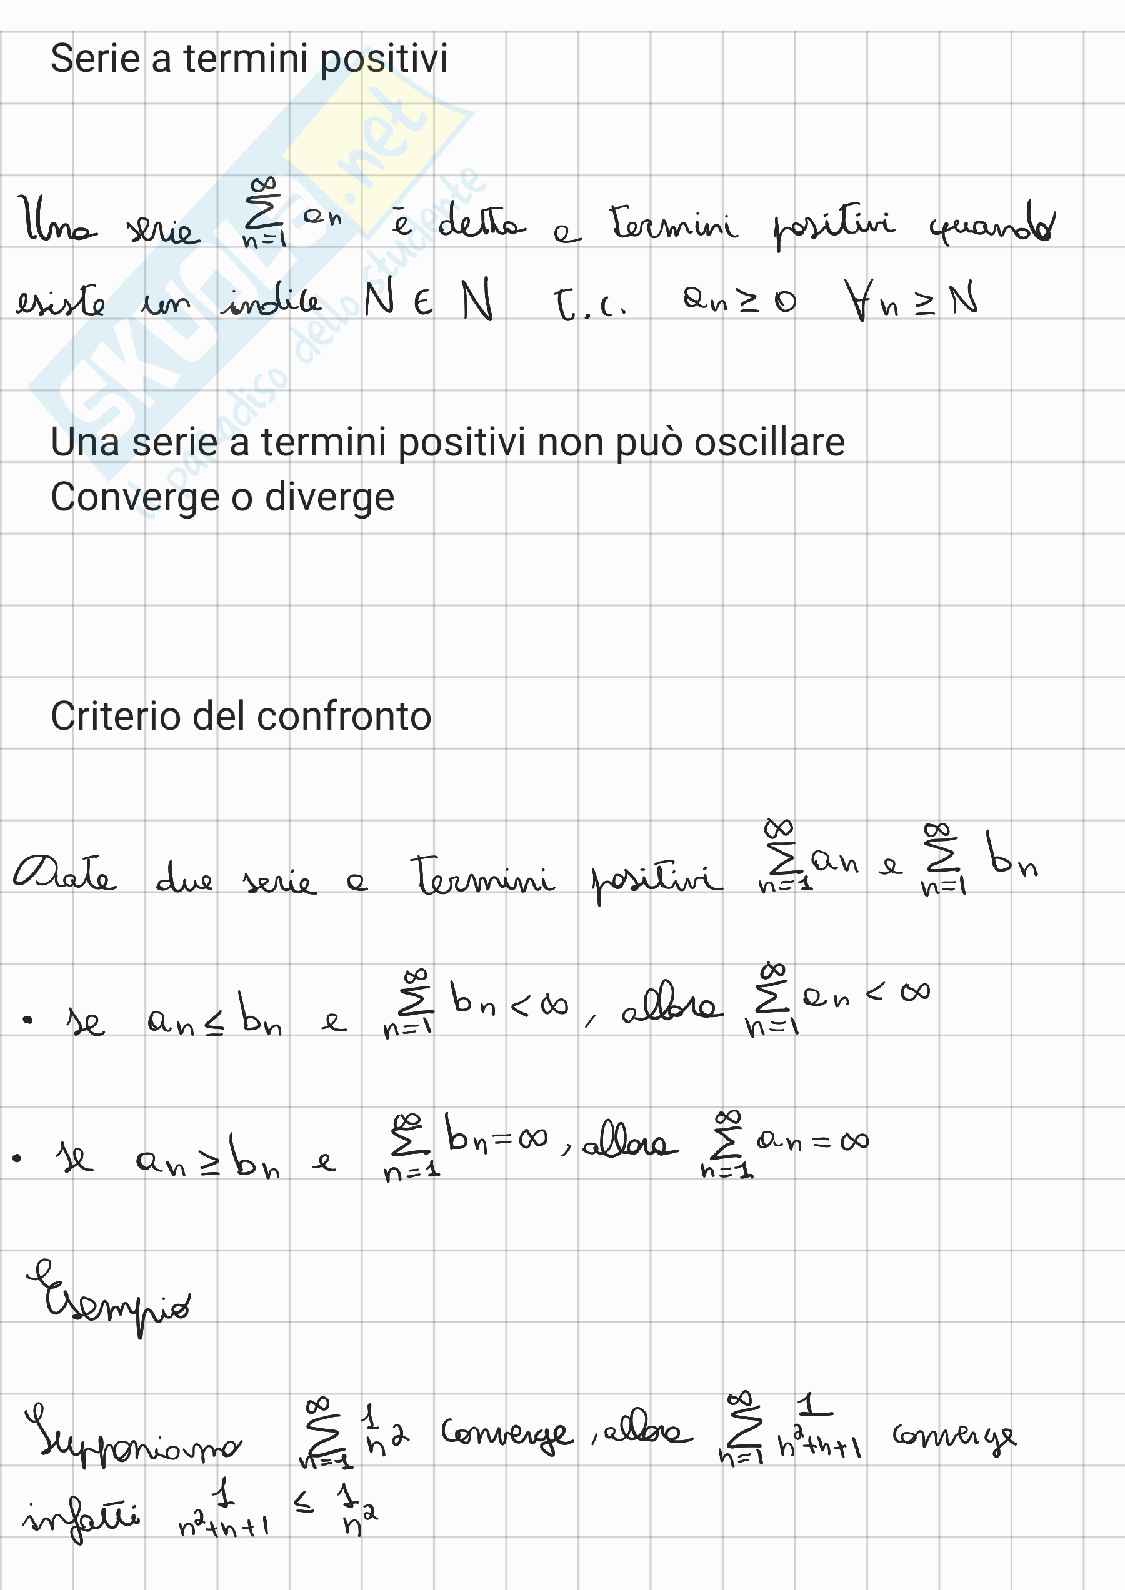 Serie a termini positivi
SKUOLA.net
il paradiso dello studente
Una serie ∑_{n=1}^{∞} an è detta a termini positivi quando
esiste un indice N ∈ N t.c. an ≥ 0 ∀n ≥ N
Una serie a termini positivi non può oscillare
Converge o diverge
Criterio del confronto
Date due serie a termini positivi ∑_{n=1}^{∞} an e ∑_{n=1}^{∞} bn
• se an ≤ bn e ∑_{n=1}^{∞} bn < ∞, allora ∑_{n=1}^{∞} an < ∞
• se an ≥ bn e ∑_{n=1}^{∞} bn = ∞, allora ∑_{n=1}^{∞} an = ∞
Esempio
Supponiamo ∑_{n=1}^{∞} 1/n² converge, allora ∑_{n=1}^{∞} 1/(n²+n+1) converge
infatti 1/(n²+n+1) ≤ 1/n²